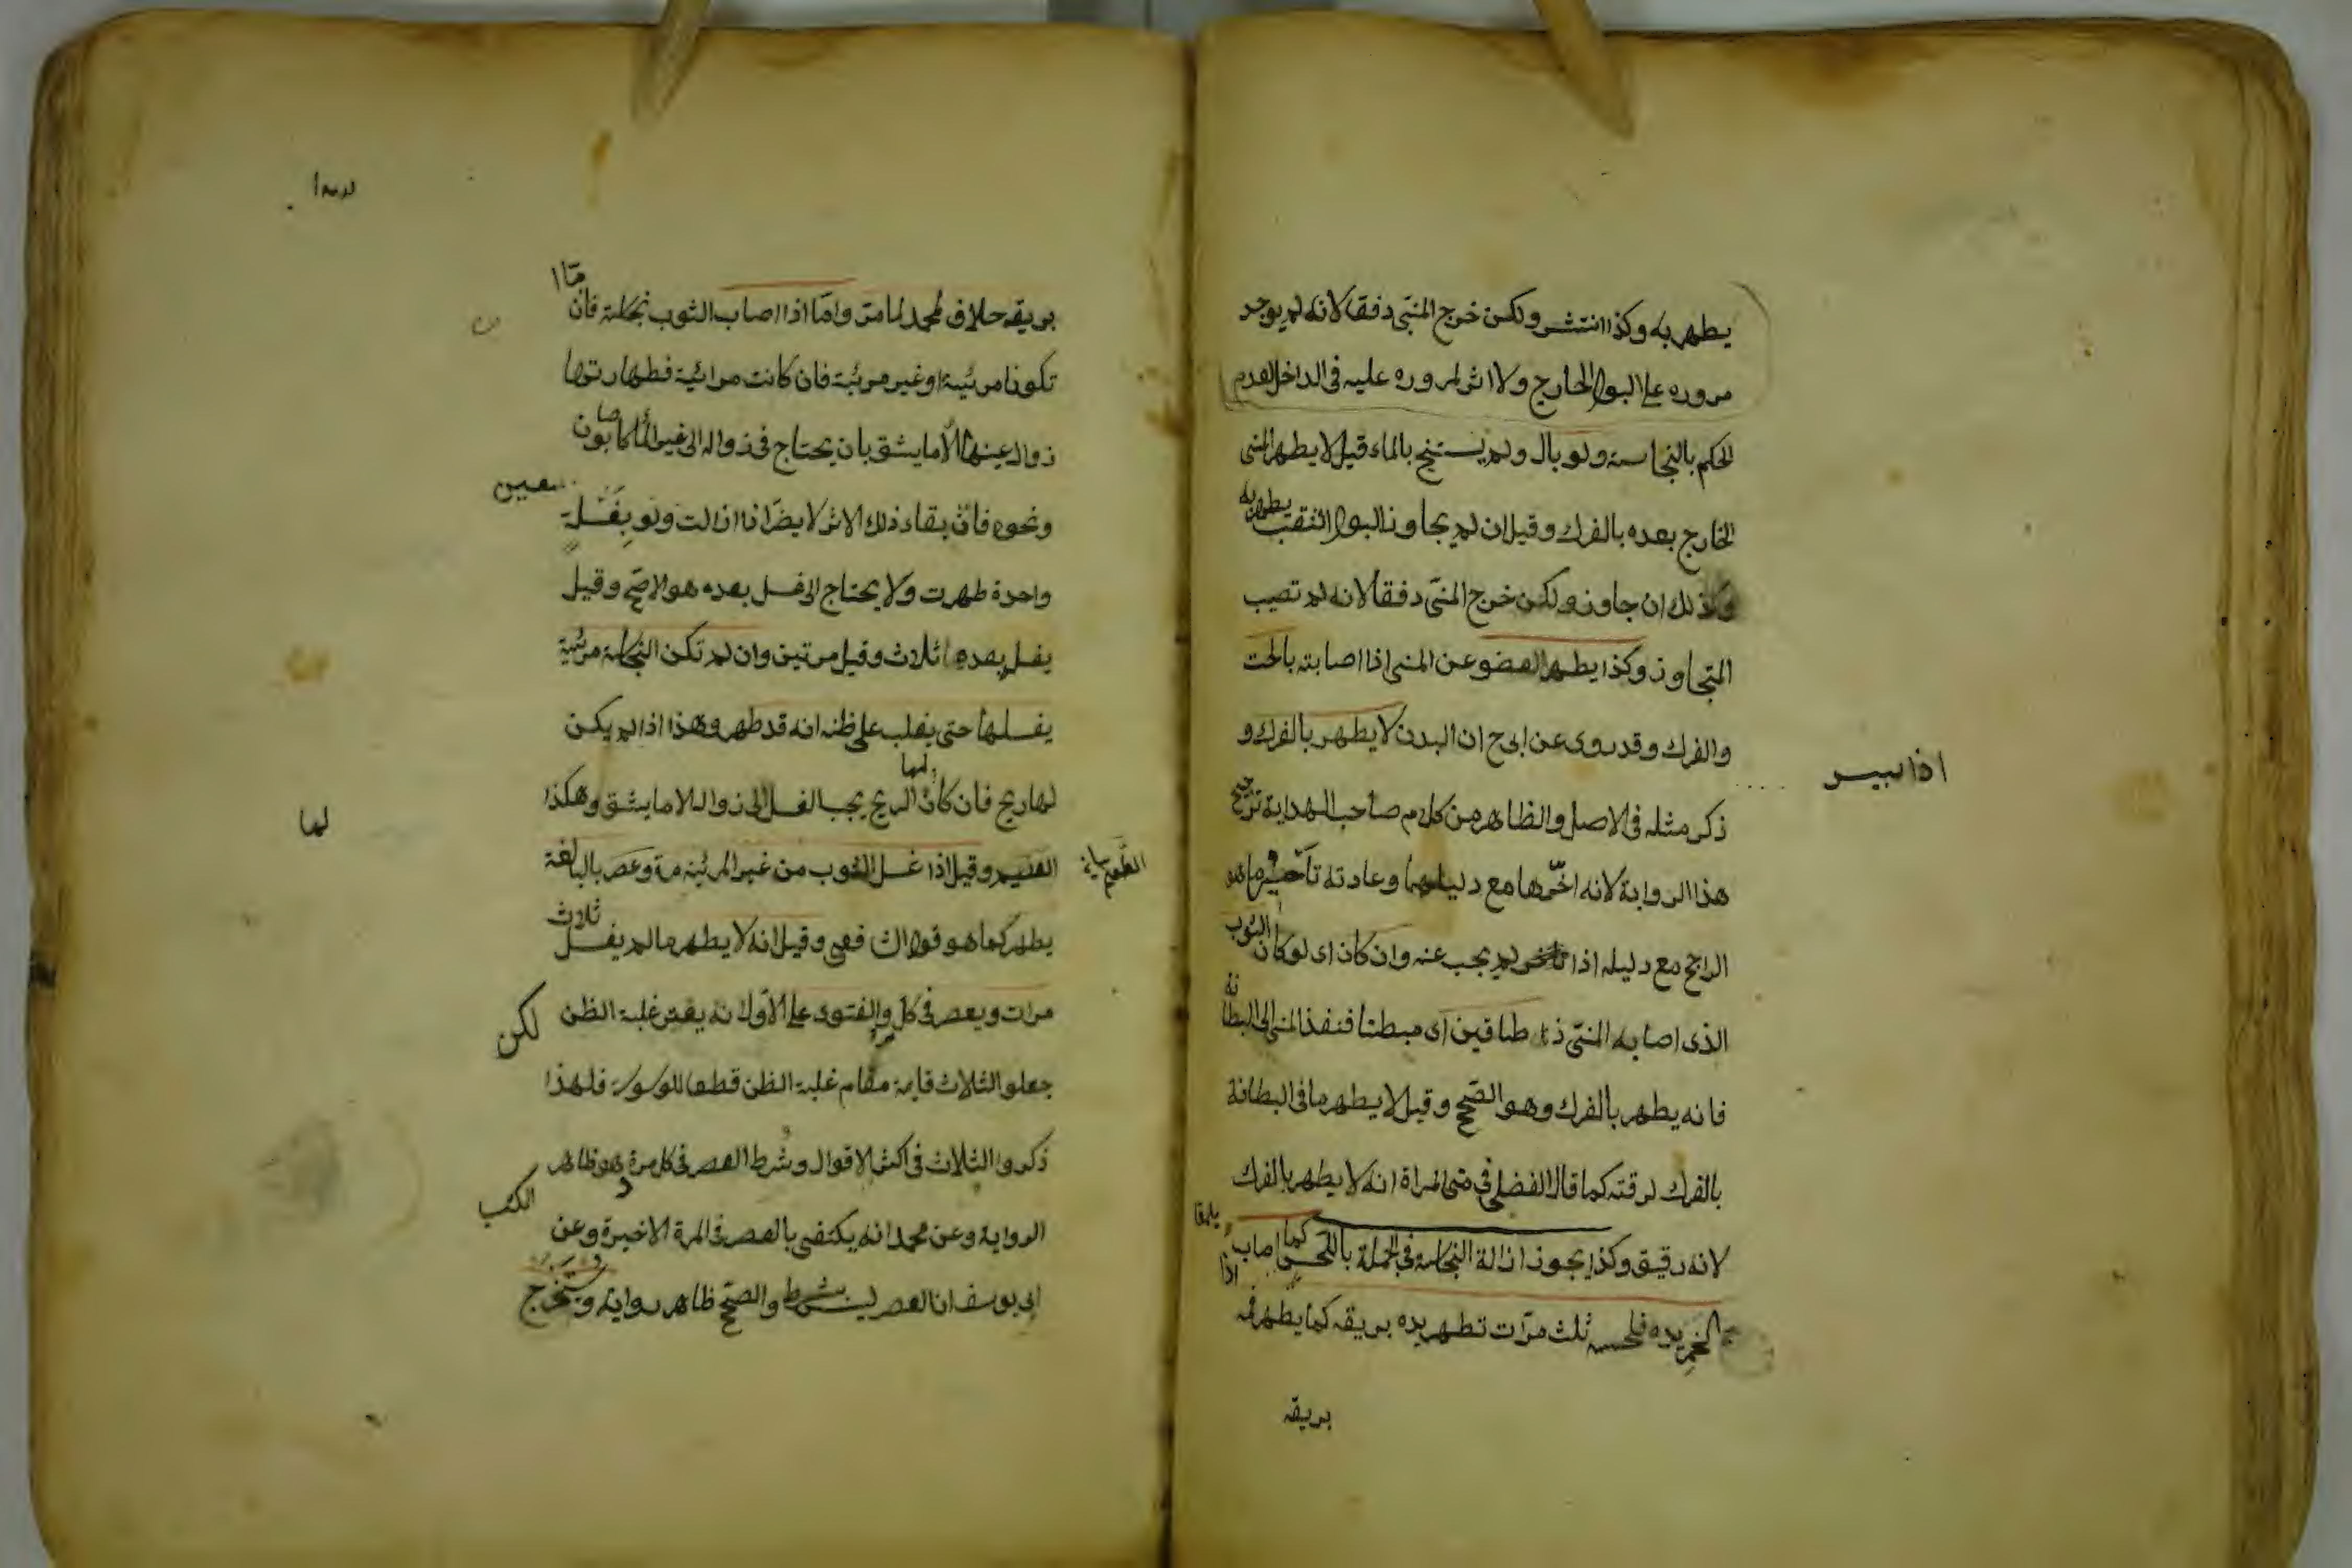 يطهر به وكذا انتشر ولكن خرج المنى دفقا لانه لم يوجد
مروره على البول الخارج ولا اثر لمروره عليه فى الداخل لعدم
الحكم بالنجاسة ولو بال ولم يستنج بالماء قيل لا يطهر المنى
الخارج بعده بالفرك وقيل ان لم يجاوز البول الثقب يطهر به
وكذلك ان جاوز ولكن خرج المنى دفقا لانه لم تصيب
المتجاوز وكذا يطهر العضو عن المنى اذا اصابته بالحت
والفرك وقد روى عن ابى ح ان البدن لا يطهر بالفرك و
اذا يبس
ذكر مثله فى الاصل والظاهر من كلام صاحب الهداية ترجيح
هذا الرواية لانه اخّرها مع دليلهما وعادته تأخير ما هو
الراجح مع دليله اذا لم يجب عنه وان كان اى لو كان الثوب
الذى اصابه المنىّ ذا طاقين اى مبطنا فنفذ المنى الى البطانة
فانه يطهر بالفرك وهو الصّحيح وقيل لا يطهر ما فى البطانة
بالفرك لرقته كما قال الفضلى فى منى المرأة انه لا يطهر بالفرك
لانه رقيق وكذا يجوز ازالة النجاسة فى الجملة باللحس كما اذا اصاب
الخمر يده فلحسه ثلث مرّات تطهر يده بريقه كما يطهر فمه
بريقه
بريقه خلاف لمحمد لما مرّ وامّا اذا اصاب الثوب نجاسة فان امّا
تكونا مرئية او غير مرئية فان كانت مرائية فطهارتها
زوال عينها الا ما يشق بان يحتاج فى زواله الى غير الماء كاصابون
ونحوه فان بقاء ذلك الاثر لا يضرّ اذا زالت ولو بغسلة
واحدة طهرت ولا يحتاج الى غسل بعده هو الاصحّ وقيل
يغسل بعدها ثلاث وقيل مرتين وان لم تكن النجاسة مرئية
يغسلها حتى يغلب على ظنه انه قد طهر وهذا اذا لم يكن
لها ريح فان كان لها الريح يجب الغسل الى زواله الا ما يشق وهكذا
لها
وقيل اذا غسل الثوب من غير المرئية مرة وعصر بالبالغة
يطهر كما هو قول الشافعى وقيل انه لا يطهر ما لم يغسل ثلاث
مرات ويعصر فى كل مرة والفتوى على الاول انه يعتبر غلبة الظن
لكن
جعلو الثلاث قايمة مقام غلبة الظن قطعا للوسوسة فلهذا
ذكروا الثلاث فى اكثر الاقوال وشرط العصر فى كل مرة هو ظاهر
الرواية وعن محمد انه يكتفى بالعصر فى المرة الاخيرة وعن
الكتب
ابى يوسف ان العصر ليس بشرط والصّحيح ظاهر رواية